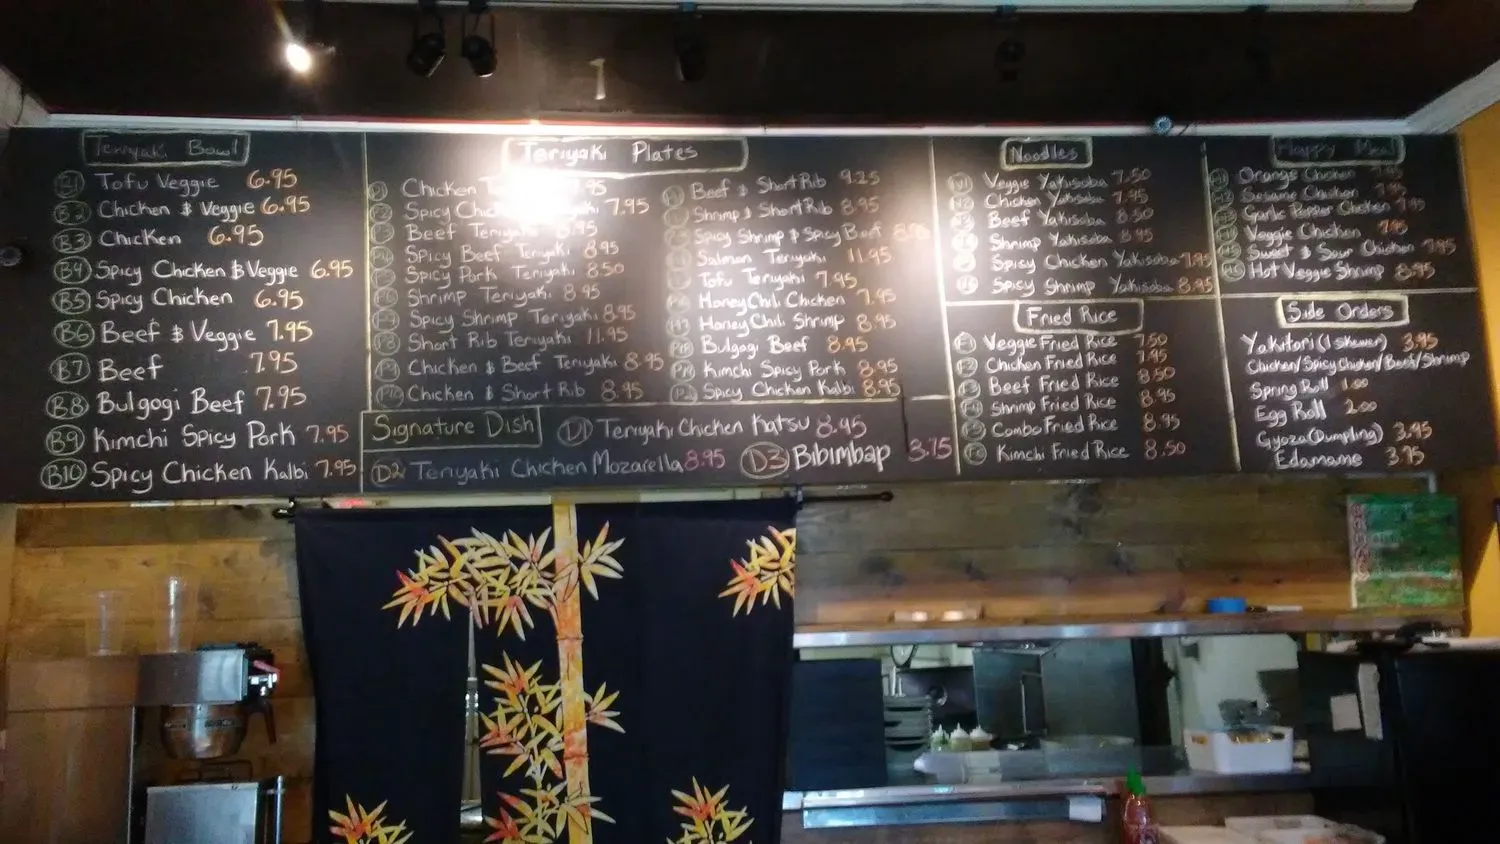 Teriyaki Bowl
B1 Tofu Veggie 6.95
B2 Chicken $ Veggie 6.95
B3 Chicken 6.95
B4 Spicy Chicken $ Veggie 6.95
B5 Spicy Chicken 6.95
B6 Beef $ Veggie 7.95
B7 Beef 7.95
B8 Bulgogi Beef 7.95
B9 Kimchi Spicy Pork 7.95
B10 Spicy Chicken Kalbi 7.95
Teriyaki Plates
Chicken
Spicy 7.95
Beef Teriyaki 8.95
Spicy Beef Teriyaki 8.95
Spicy Pork Teriyaki 8.50
Shrimp Teriyaki 8.95
Spicy Shrimp Teriyaki 8.95
P8 Short Rib Teriyaki 11.95
P9 Chicken $ Beef Teriyaki 8.95
P10 Chicken $ Short Rib 8.95
Beef $ Short Rib 9.25
Shrimp $ Short Rib 8.95
Spicy Shrimp $ Spicy Beef
Salmon Teriyaki 11.95
Tofu Teriyaki 7.95
Honey Chili Chicken 7.95
Honey Chili Shrimp 8.95
Bulgagi Beef 8.95
Kimchi Spicy Pork 8.95
Spicy Chicken Kalbi 8.95
Signature Dish
D1 Teriyaki Chicken Katsu 8.95
D2 Teriyaki Chicken Mozarella 8.95
D3 Bibimbap 3.75
Noodles
N1 Veggie Yakisoba 7.50
N2 Chicken Yakisoba 7.95
N3 Beef Yakisoba 8.50
Shrimp Yakisoba 8.95
Spicy Chicken Yakisoba 7.95
Spicy Shrimp Yakisoba 8.95
Fried Rice
F1 Veggie Fried Rice 7.50
F2 Chicken Fried Rice 7.95
F3 Beef Fried Rice 8.50
F4 Shrimp Fried Rice 8.95
F5 Combo Fried Rice 8.95
F6 Kimchi Fried Rice 8.50
Happy Meal
Orange Chicken 7.95
Sesame Chicken 7.95
Garlic Pepper Chicken 7.95
Veggie Chicken
Sweet $ Sour Chicken 7.95
Hot Veggie Shrimp 8.95
Side Orders
Yakitori (1 skewer) 3.95
Chicken/Spicy Chicken/Beef/Shrimp
Spring Roll 1.00
Egg Roll 2.00
Gyoza (Dumpling) 3.95
Edamame 3.75